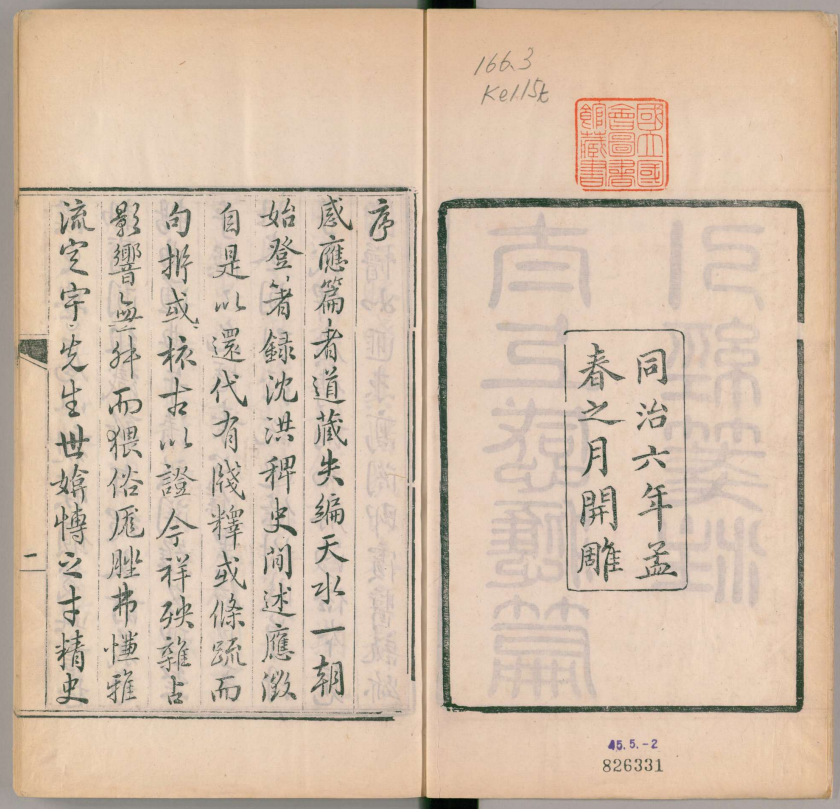 166.3
Ke115t
國立國
會圖書
館藏書
同治六年孟
春之月開雕
45.5.-2
826331
序
感應篇者道藏失編天水一朝
始登著錄沈洪稗史間述應徵
自是以還代有牋釋或條疏而
句折或核古以證今祥殃雜占
影響無舛而猥俗厖脞弗愜雅
流定宇先生世愽之才精史
一